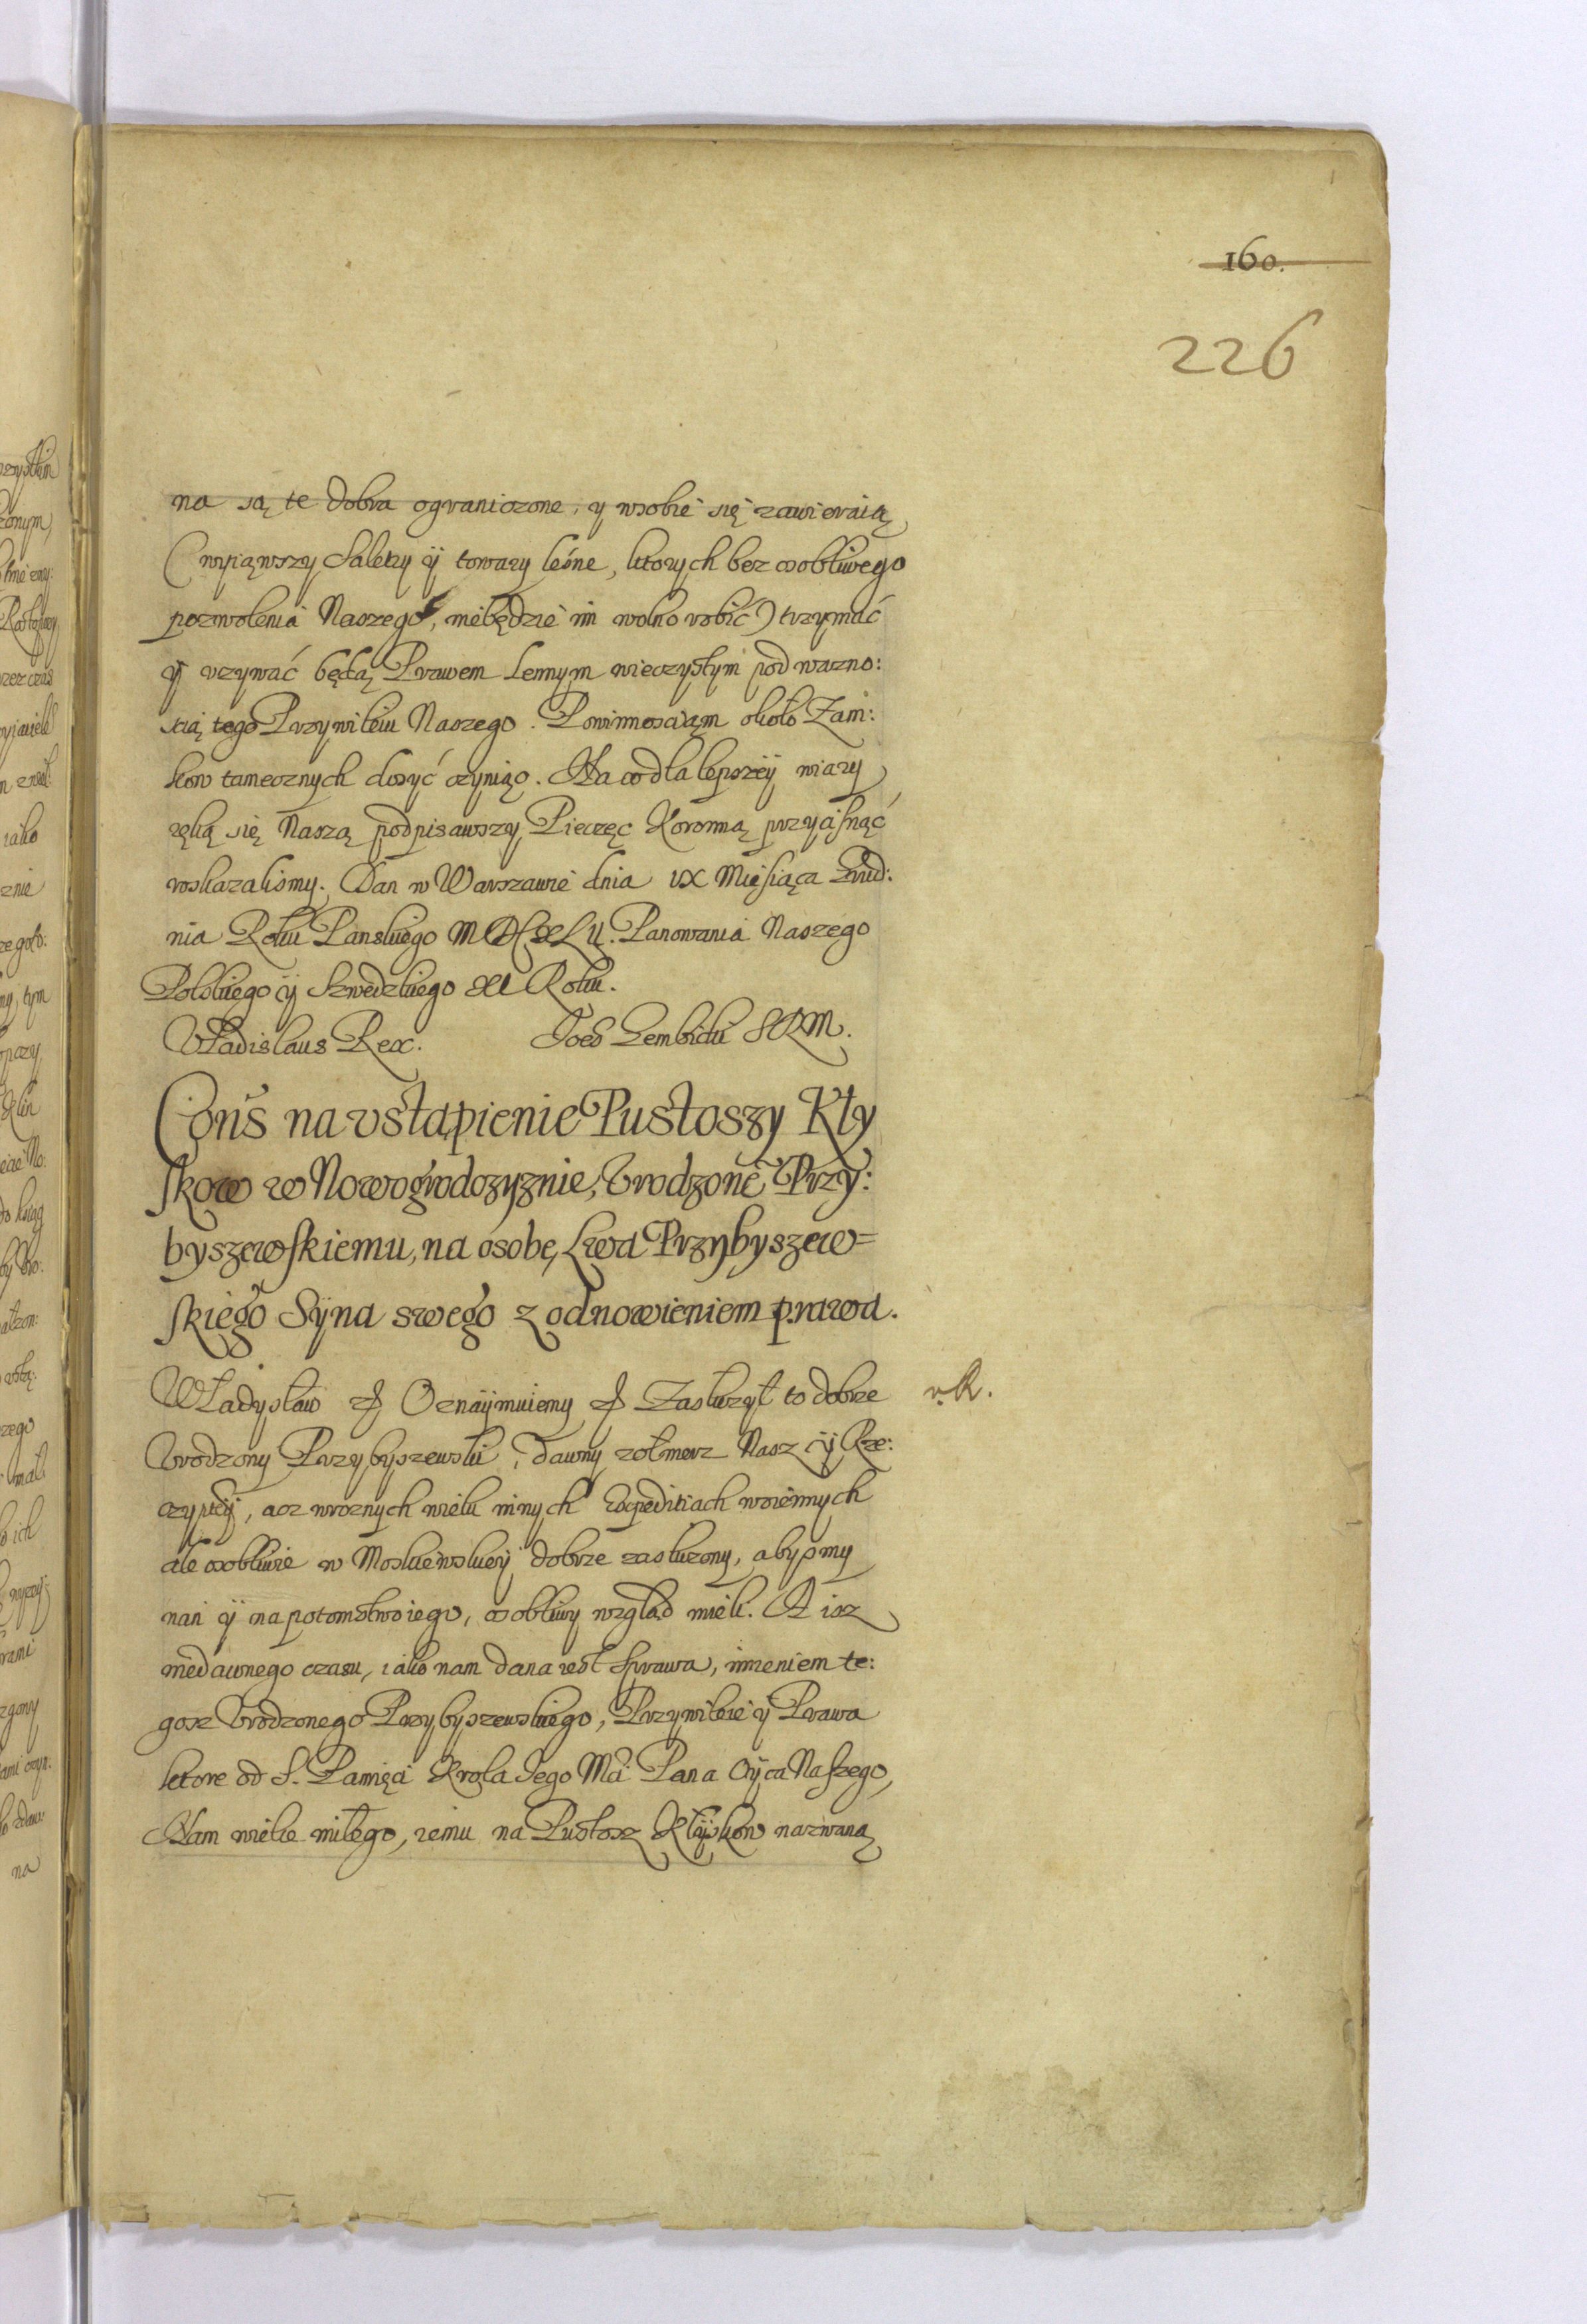 160.
226
na są te dobra ograniczone, y wsobie się zawieraią
(wyiąwszy Saletry ÿ towary leśne, ktorych bez osobliwego
pozwolenia Naszego, niebędzie im wolno robić) trzymać
ÿ vzywać będą Prawem Lennym wieczystym pod wazno:
scią tego Przywileiu Naszego. Powinnosciąm około Zam:
kow tamecznych dosyć czyniąc. Na co dla lepszeÿ wiary
ręką się Naszą podpisawszy, Pieczęc Koronną przycisnąć
roskazalismy. Dan w Warszawie dnia IX Miesiąca Grud:
nia Roku Panskiego MDCXLII. Panowania Naszego
Polskiego ÿ Szwedzkiego XI Roku.
Vladislaus Rex. Joes Gembicki SRM.
Cons na vstąpienie Pustoszy Kły
skow w Nowogrodczyznie, Vrodzone Przy:
byszewskiemu, na osobę Lwa Przybyszew=
skiego Sÿna swego z odnowieniem prawa.
Władysław &c Oznaÿmuiemy &c Zasłuzył to dobrze
v.k.
Vrodzony Przybyszewski, dawny zołnierz Nasz ÿ Rze:
czyptey, acz wroznych wielu innych Expeditiach woiennych
ale osobliwie w Moskiewskieÿ dobrze zasłuzony, abysmy
nan ÿ na potomstwo iego, osobliwy wzgląd mieli. A isz
niedawnego czasu, iako nam dana iest sprawa, imieniem te:
gosz Vrodzonego Przybyszewskiego, Przywileie ÿ Prawa
ktore od S. Pamięci Krola Jego Mci Pana Oÿca Naszego,
Nam wielce miłego, iemu na Pustosz Kłÿskow nazwaną